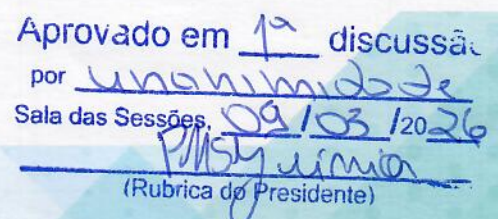 Aprovado em 1ª discussã
por unanimidade
Sala das Sessões, 09/03/2026
(Rubrica do Presidente)